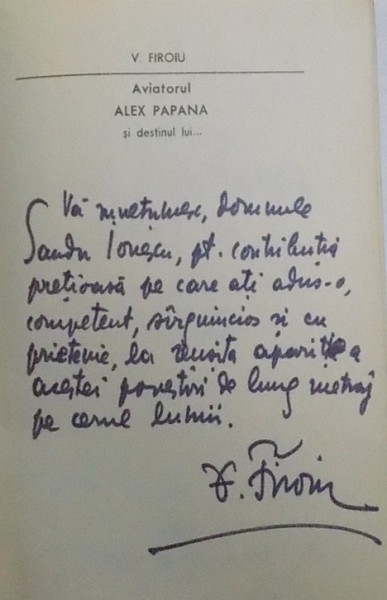 V. FIROIU
Aviatorul
ALEX PAPANA
și destinul lui...
Vă mulțumesc, domnule
Sandu Ionescu, pt. contribuția
prețioasă pe care ați adus-o,
competent, sîrguincios si cu
prietenie, la reușita apariției a
acestei povestiri de lung metraj
pe cerul lumii.
V. Firoiu